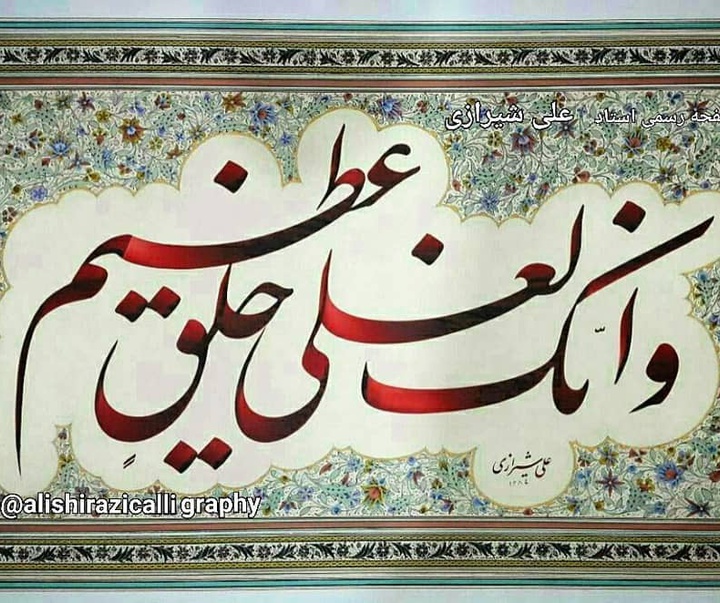 صفحه رسمی استاد علی شیرازی
وانّک لعلی خلقٍ عظیم
علی شیرازی
@alishirazicalligraphy